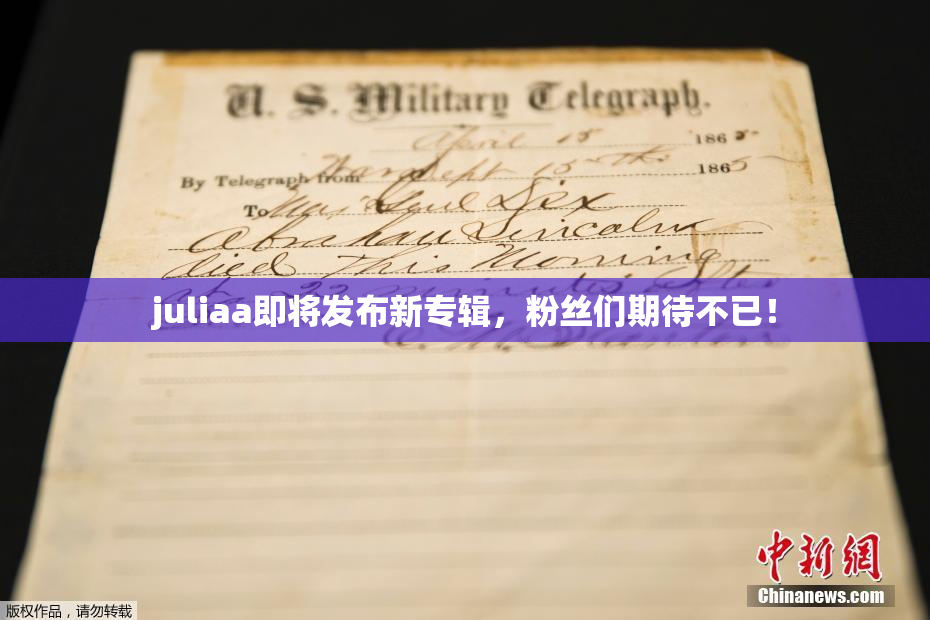 U. S. Military Telegraph.
April 15 1865
By Telegraph from War Dept 15th 1865
To Maj Genl Dix
Abraham Lincoln
died This Morning
at 22 minutes after
juliaa即将发布新专辑，粉丝们期待不已！
E. M. Stanton
中新網
Chinanews.com
版权作品，请勿转载